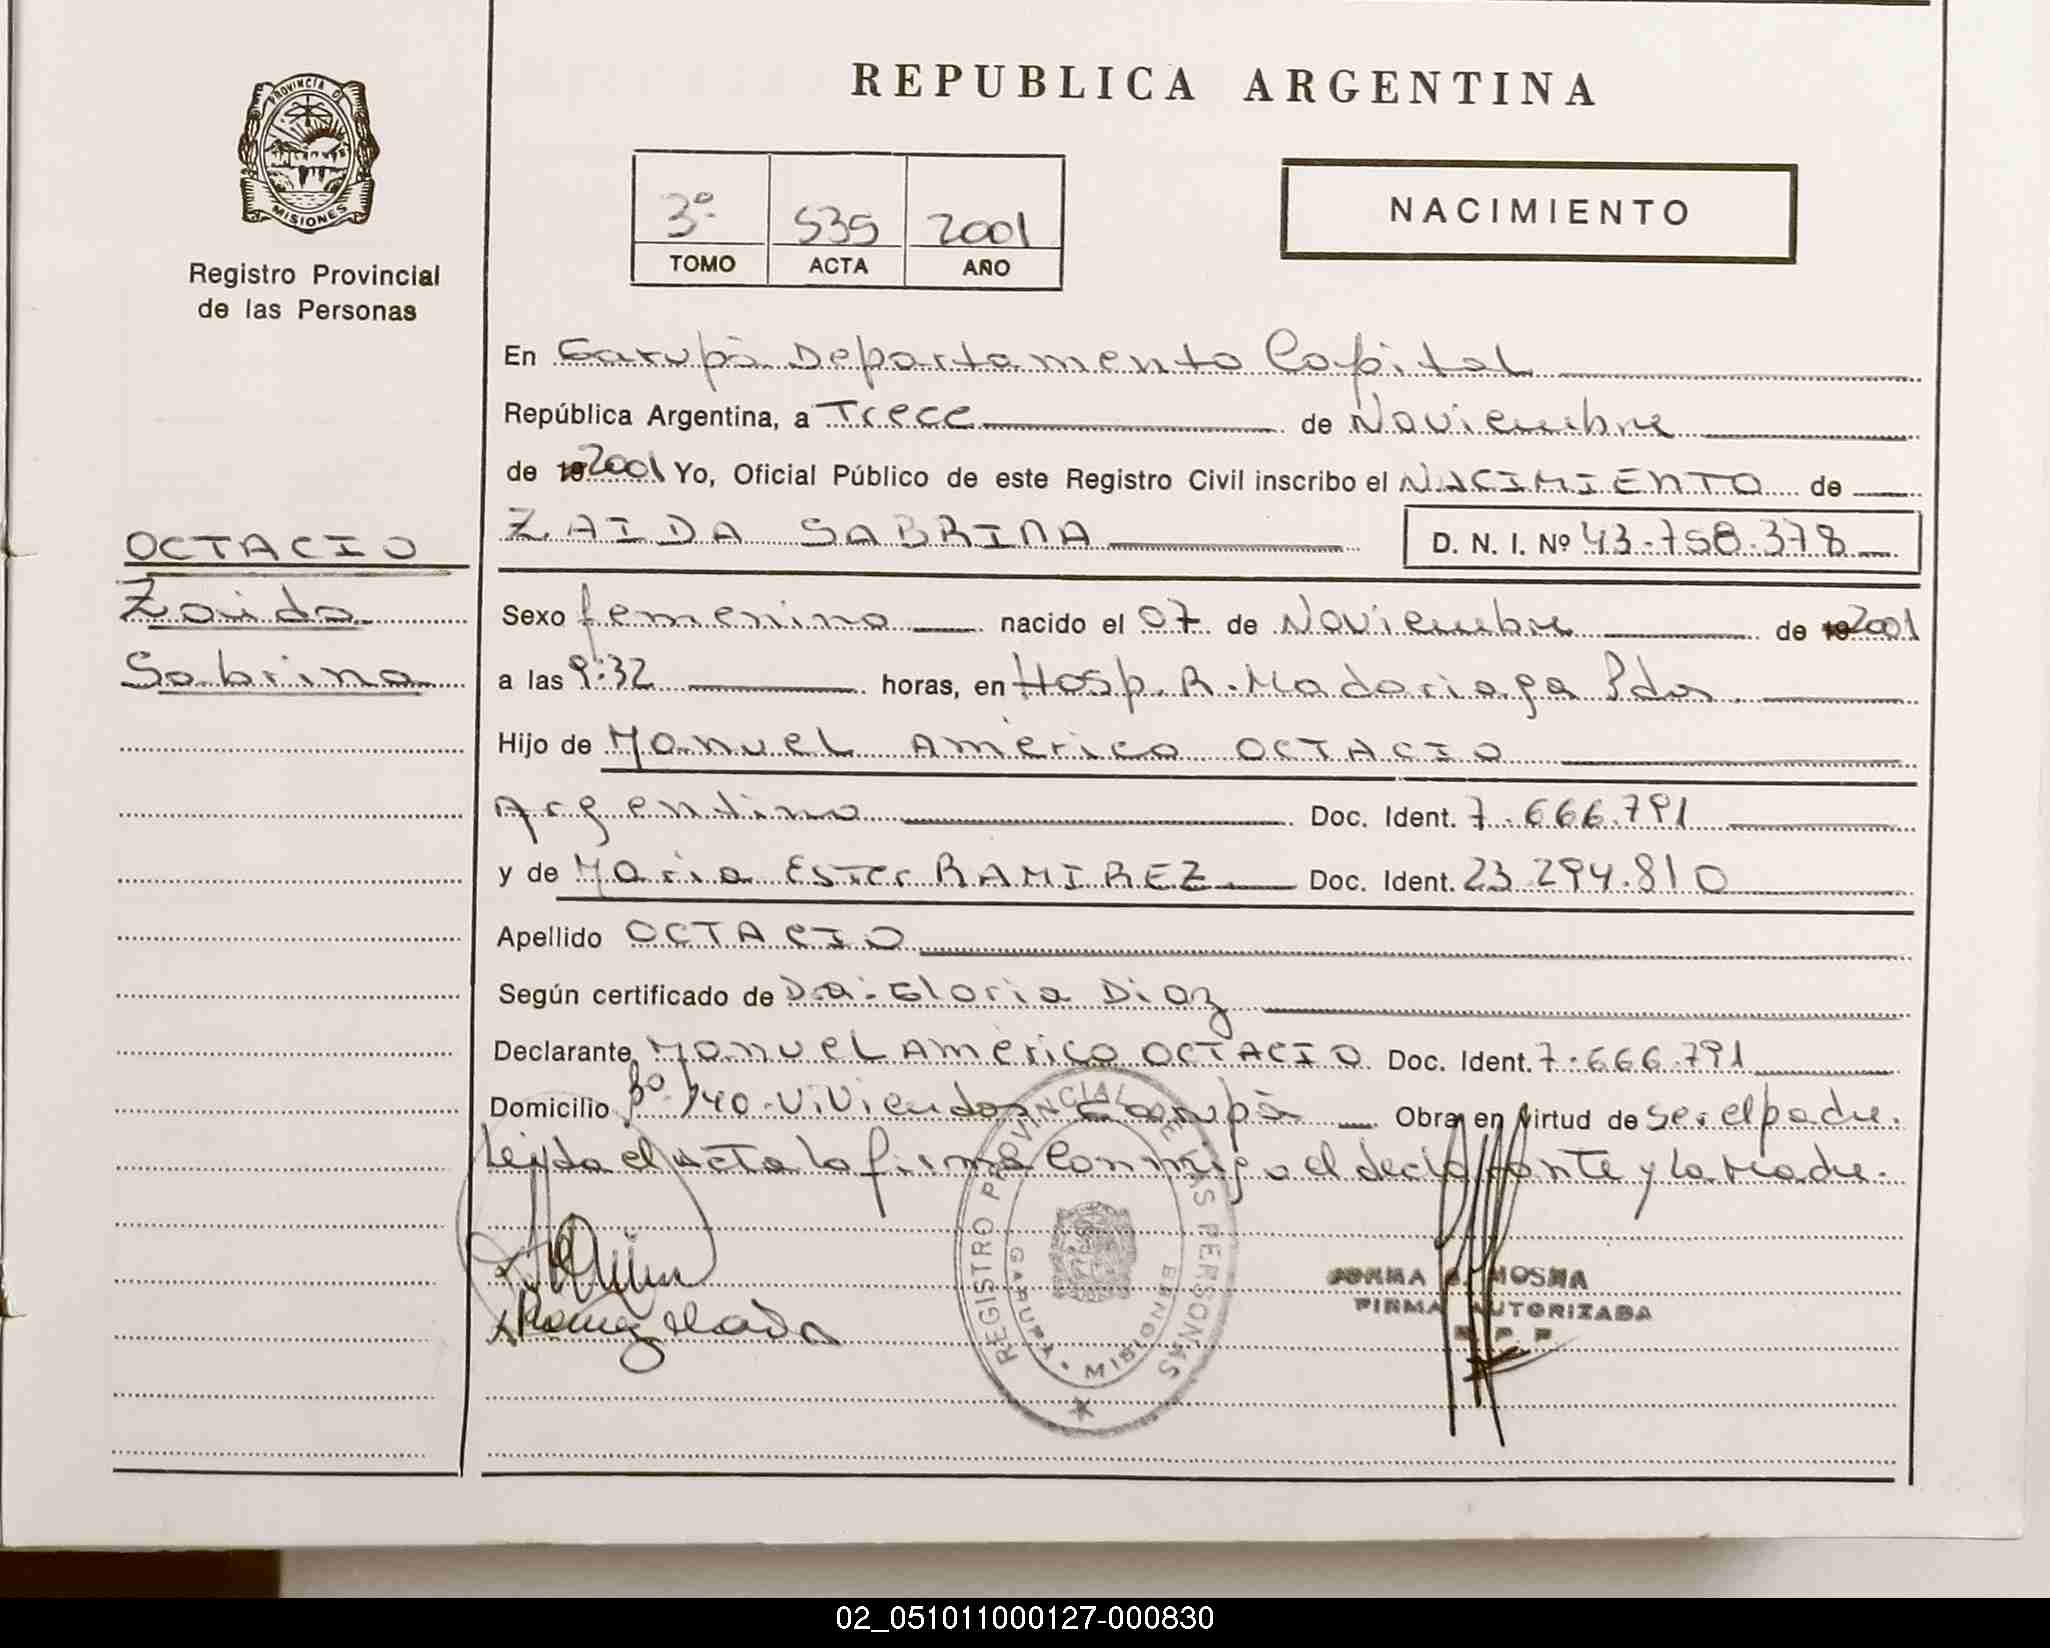 PROVINCIA DE
MISIONES
Registro Provincial
de las Personas
REPUBLICA ARGENTINA
3º 535 2001
TOMO ACTA AÑO
NACIMIENTO
En Garupà Departamento Capital
República Argentina, a Trece de Noviembre
de 19 2001 Yo, Oficial Público de este Registro Civil inscribo el NACIMIENTO de
ZAIDA SABRINA D. N. I. Nº 43.758.378
OCTACIO
Zaida
Sabrina
Sexo femenino nacido el 07 de Noviembre de 19 2001
a las 9:32 horas, en Hosp. R. Madariaga Pdas.
Hijo de Manuel Américo OCTACIO
Argentino Doc. Ident. 7.666.791
y de Maria Ester RAMIREZ Doc. Ident. 23.294.810
Apellido OCTACIO
Según certificado de Gloria Diaz
Declarante Manuel Américo OCTACIO Doc. Ident. 7.666.791
Domicilio Bº 140 Viviendas Garupà Obra en virtud de ser el padre.
Leida el acta la firma conmigo el declarante y la Madre.
REGISTRO PROVINCIAL DE LAS PERSONAS
GARUPA • MISIONES
MOSNA
FIRMA AUTORIZADA
02_051011000127-000830